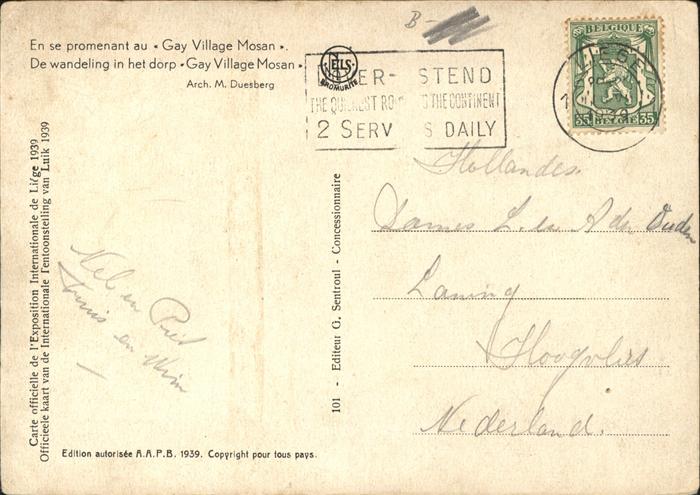 En se promenant au « Gay Village Mosan ».
De wandeling in het dorp « Gay Village Mosan »
Arch. M. Duesberg
ELS
BROMURITE
B-
STEND
THE CONTINENT
2 SERV S DAILY
BELGIQUE
35 BELGIE 35
Hollandes
Dames L. en A den Ouden
Laning
Nederland.
Carte officielle de l'Exposition Internationale de Liége 1939
Officieele kaart van de Internationale Tentoonstelling van Luik 1939
Nel en
en Wim
101 - Editeur G. Sentroul - Concessionnaire
Edition autorisée A.A.P.B. 1939. Copyright pour tous pays.